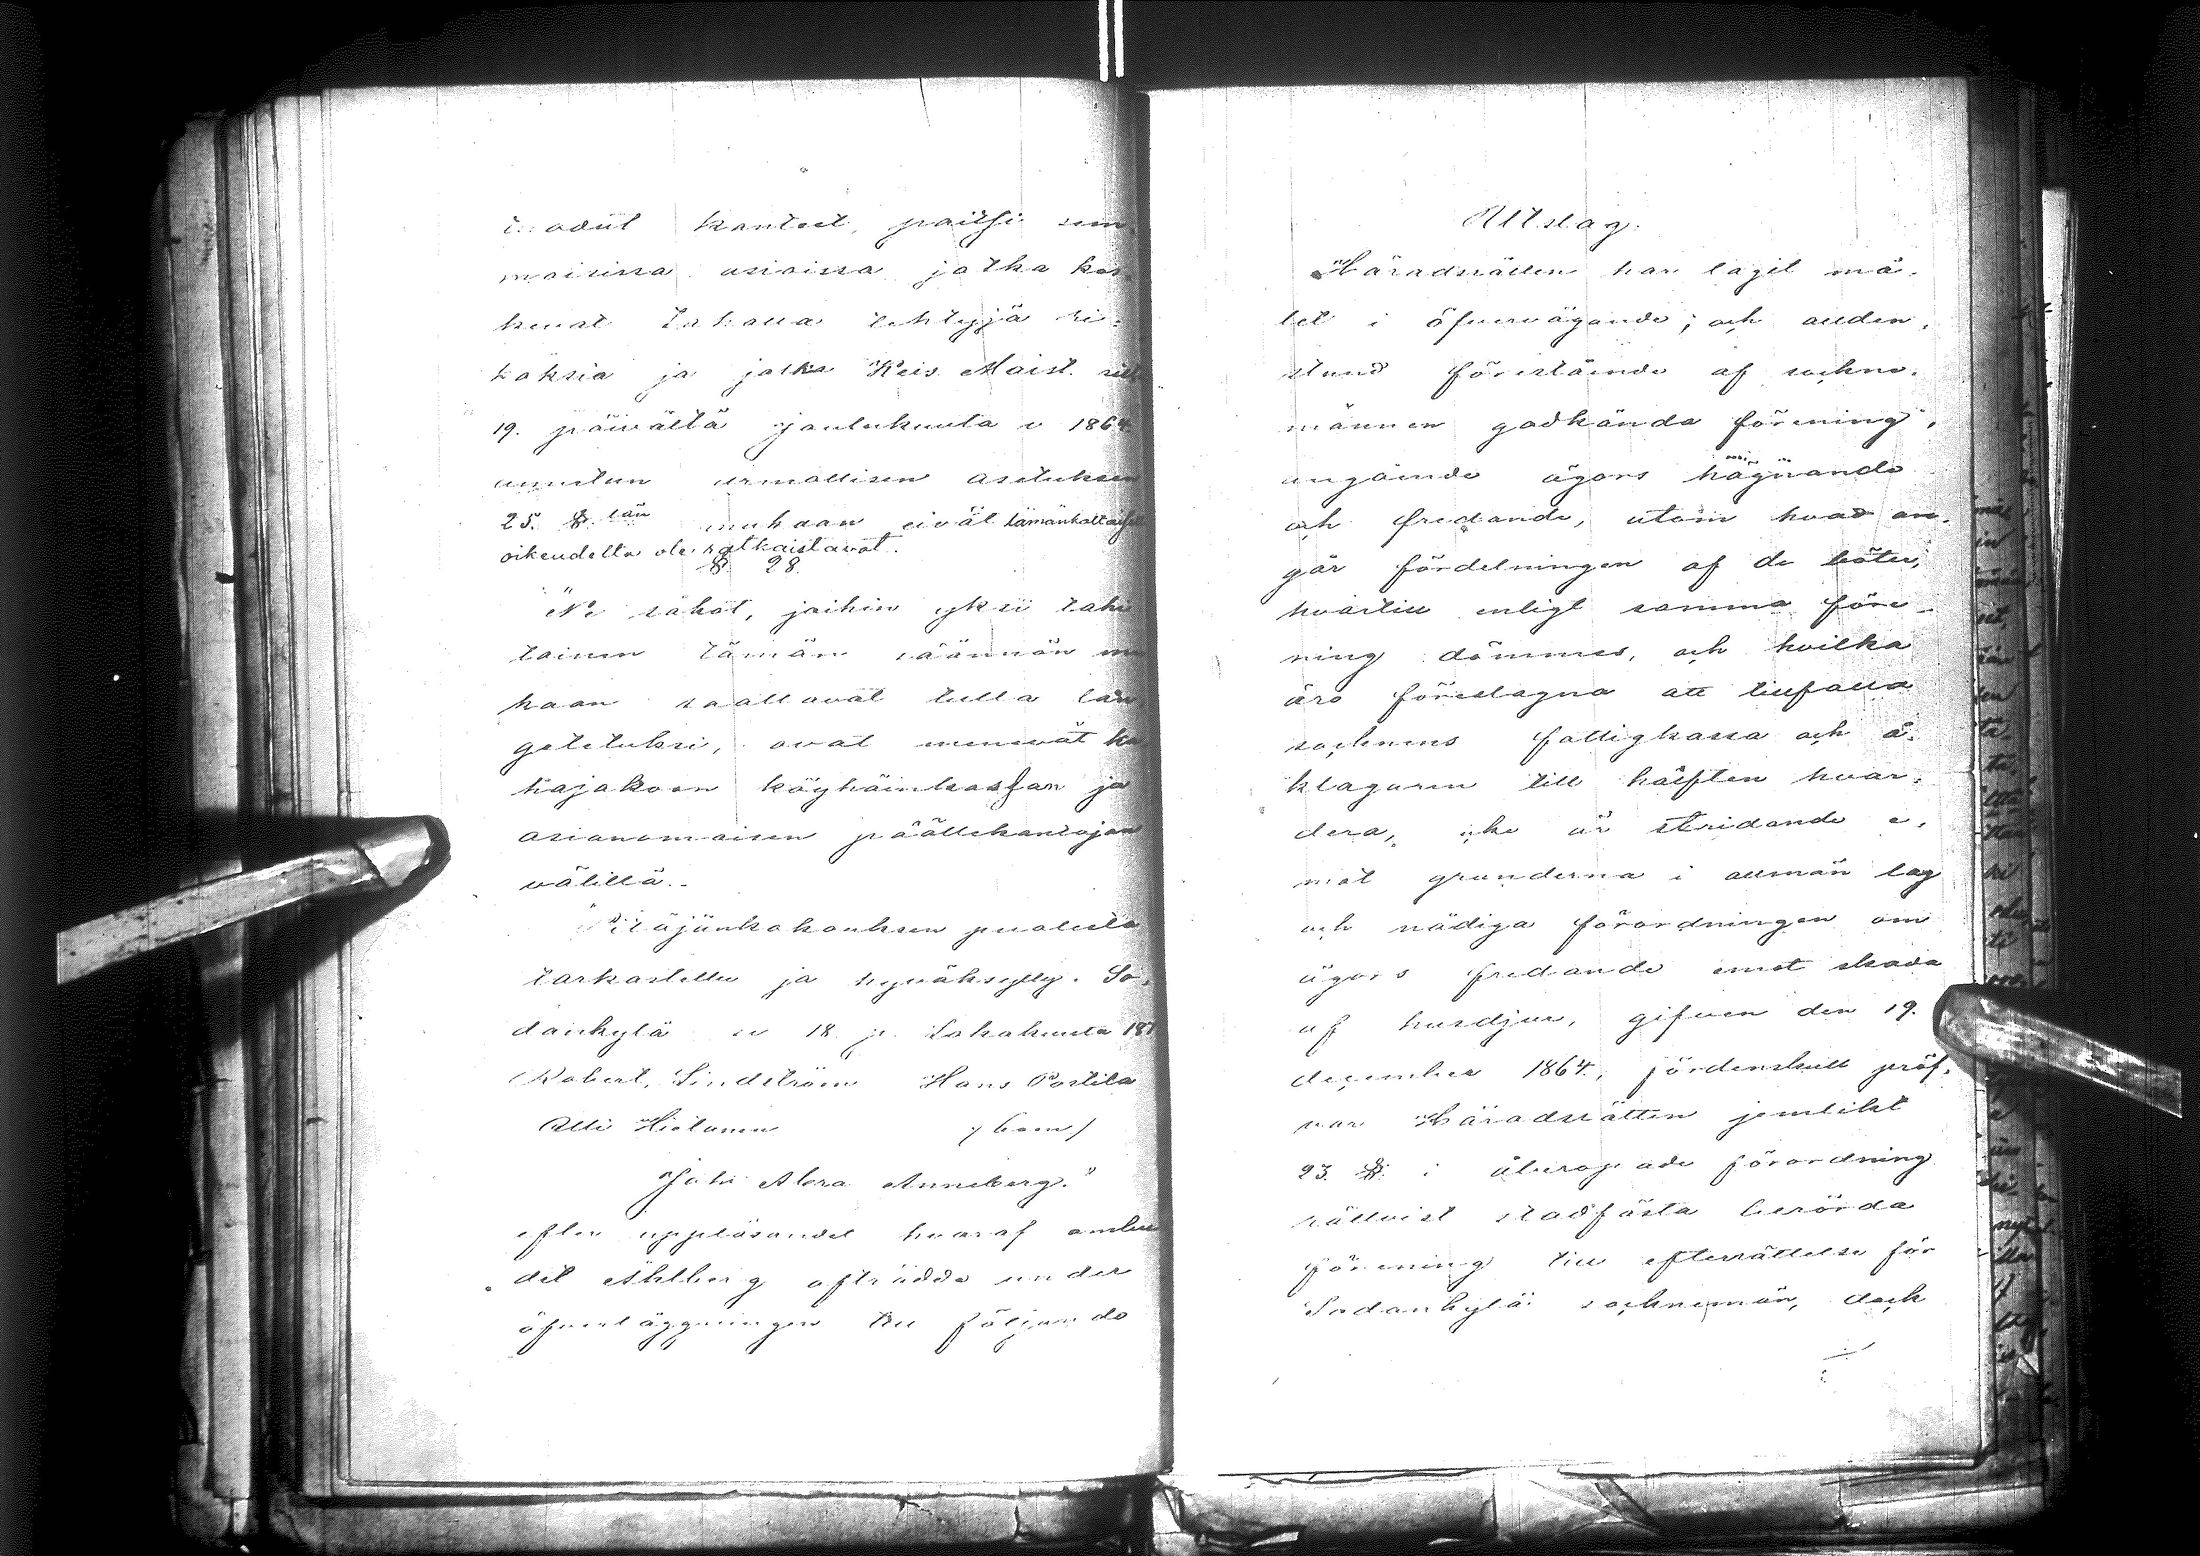 kanteet, paitsi sem-
moisissa asioissa jotka kos-
kevat takaua tehtyjä ri-
koksia ja jotka Keis. Maist.
19. päivältä joulukuuta v 1864
annetun armollisen asetuksen
25. §. län mukaan eivät tämänkaltaisessa
oikeudelta ole ratkaistavat.
§ 28
"Ne sakot, joihin yksi
tainen tämän säännön mu
kaan saattavat tulla lan
getetuksi, ovat menevät ka
hajakoon köyhäinkassan ja
asianomaisen päällekantajan
välillä.
"Pitäjänkokouksen puolesta
tarkastettu ja hyväksytty. So-
dankylä v 18 p. Lokakuuta 187
Robert Lindström Hans Postila
Olli Hietanen
Juho Abra. Anneberg."
efter uppläsandet hvaraf ombu
det Ahlberg afträdde under
öfverläggningen till följande
Utslag.
Häradsrätten har tagit må-
let i öfvervägande; och alden-
stund förestående af sockne-
männen godkända förening,
angående ägors hägnande
och fredande, utom hvad an-
går fördelningen af de böter,
hvartill enligt samma före-
ning dömmes, och hvilka
äro föreslagna att tillfalla
socknens fattigkassa och å-
klagaren till hälften hvar-
dera, icke är stridande e-
mot grunderna i allmän lag
och nådiga förordningen om
ägors fredande emot skada
af husdjur, gifven den 19.
december 1864, fördenskull pröf-
var Häradsrätten jemlikt
23. §. i åberopade förordning
rättvist stadfästa berörda
förening till efterrättelse för
Sodankylä socknemän, dock